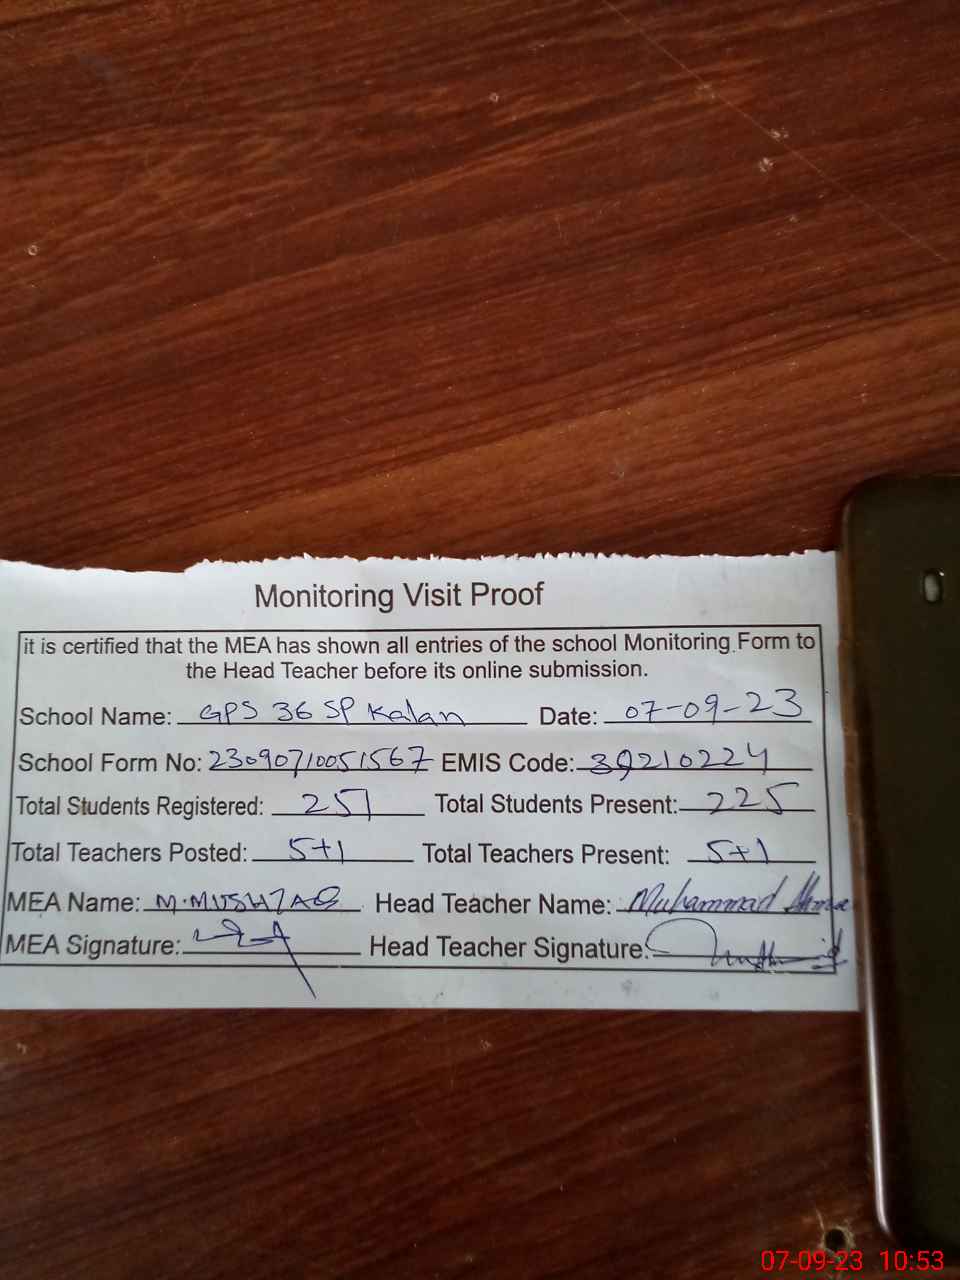 Monitoring Visit Proof
it is certified that the MEA has shown all entries of the school Monitoring Form to
the Head Teacher before its online submission.
School Name: GPS 36 SP Kalan Date: 07-09-23
School Form No: 23090710051567 EMIS Code: 39210224
Total Students Registered: 251 Total Students Present: 225
Total Teachers Posted: 5+1 Total Teachers Present: 5+1
MEA Name: M.MUSHTAQ Head Teacher Name: Muhammad
MEA Signature: Head Teacher Signature:
07-09-23 10:53